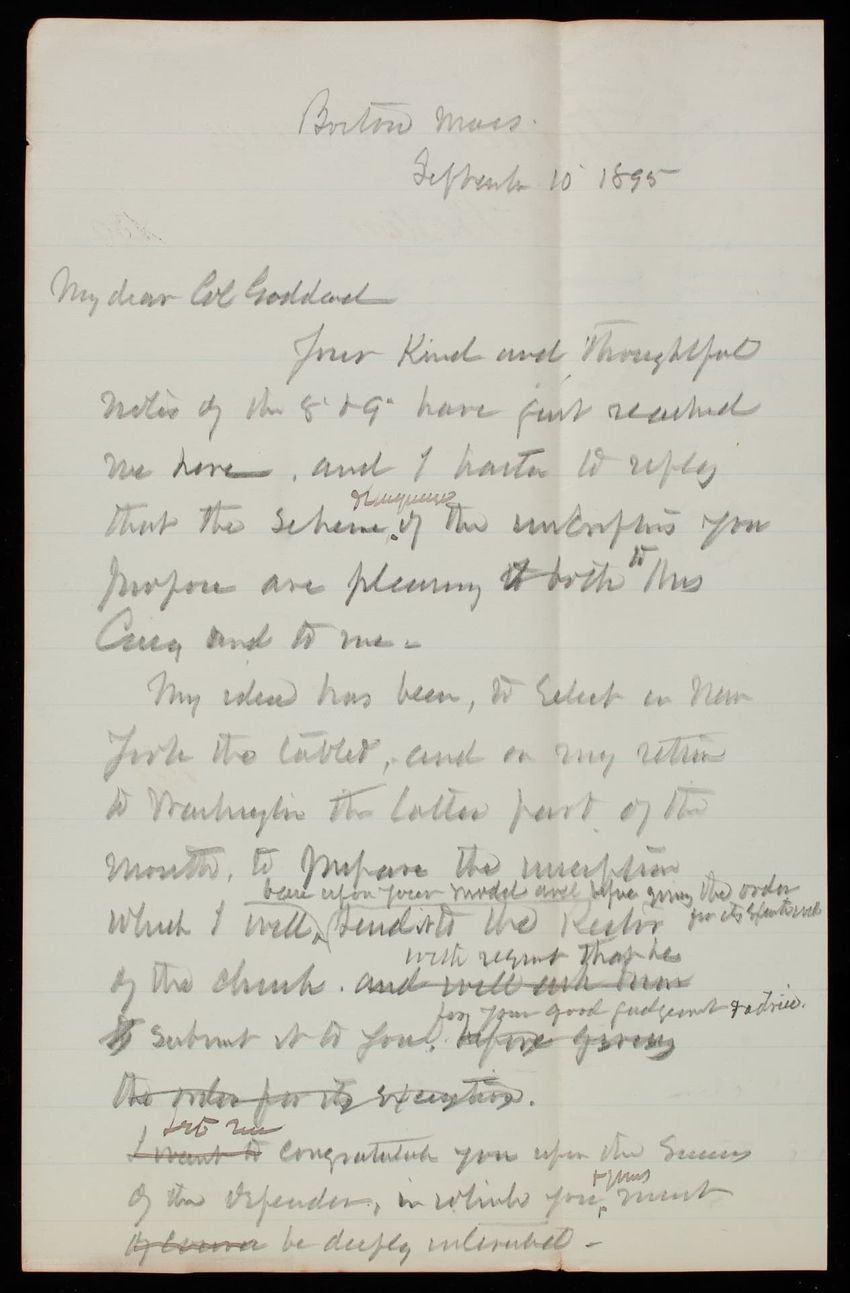 Boston Mass.
September 10 1895
My dear Col Goddard
Your Kind and thoughtful
notes of the 8" & 9" have just reached
me here, and I hasten to reply
& language
that the Scheme of the inscriptions you
propose are pleasing to both to Mrs
Casey and to me.
My idea has been, to Select in New
York the tablet, and on my return
to Washington the latter part of the
month, to prepare the inscription
base upon your model and before giving the order
for its execution will
which I will, Send it to the Rector
with request that he
of the church. and will ask him
for your good judgement & advice.
to Submit it to you, before giving
the order for its execution.
Let me
I want to congratulate you upon the Success
& yours
of the defender, in which you must
of course be deeply interested -